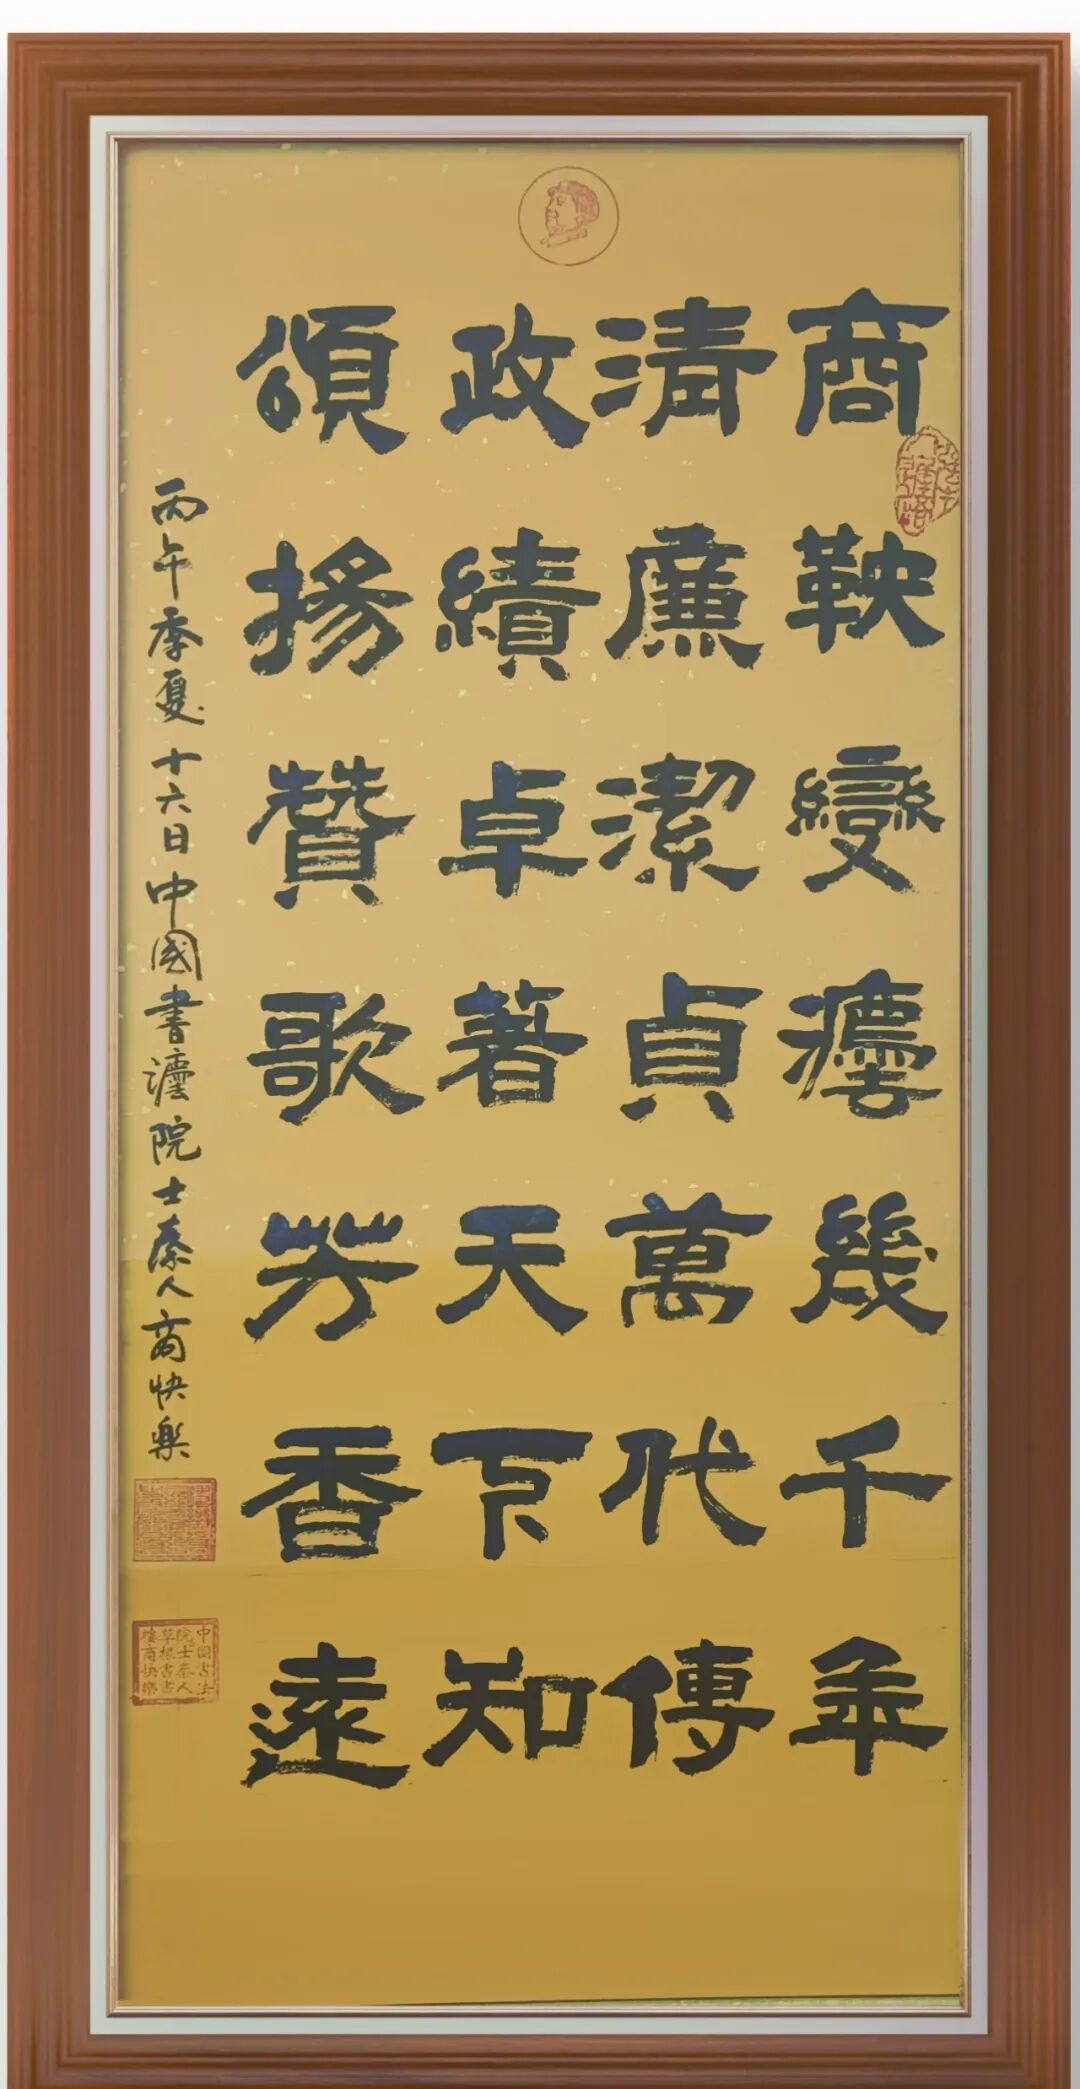 商鞅變灋幾千年
清廉潔貞萬代傳
政績卓著天下知
頌揚贊歌芳香遠
丙午季夏十六日中國書灋院士秦人商快樂
中国书法
院士秦人
草根书书
楼商快樂